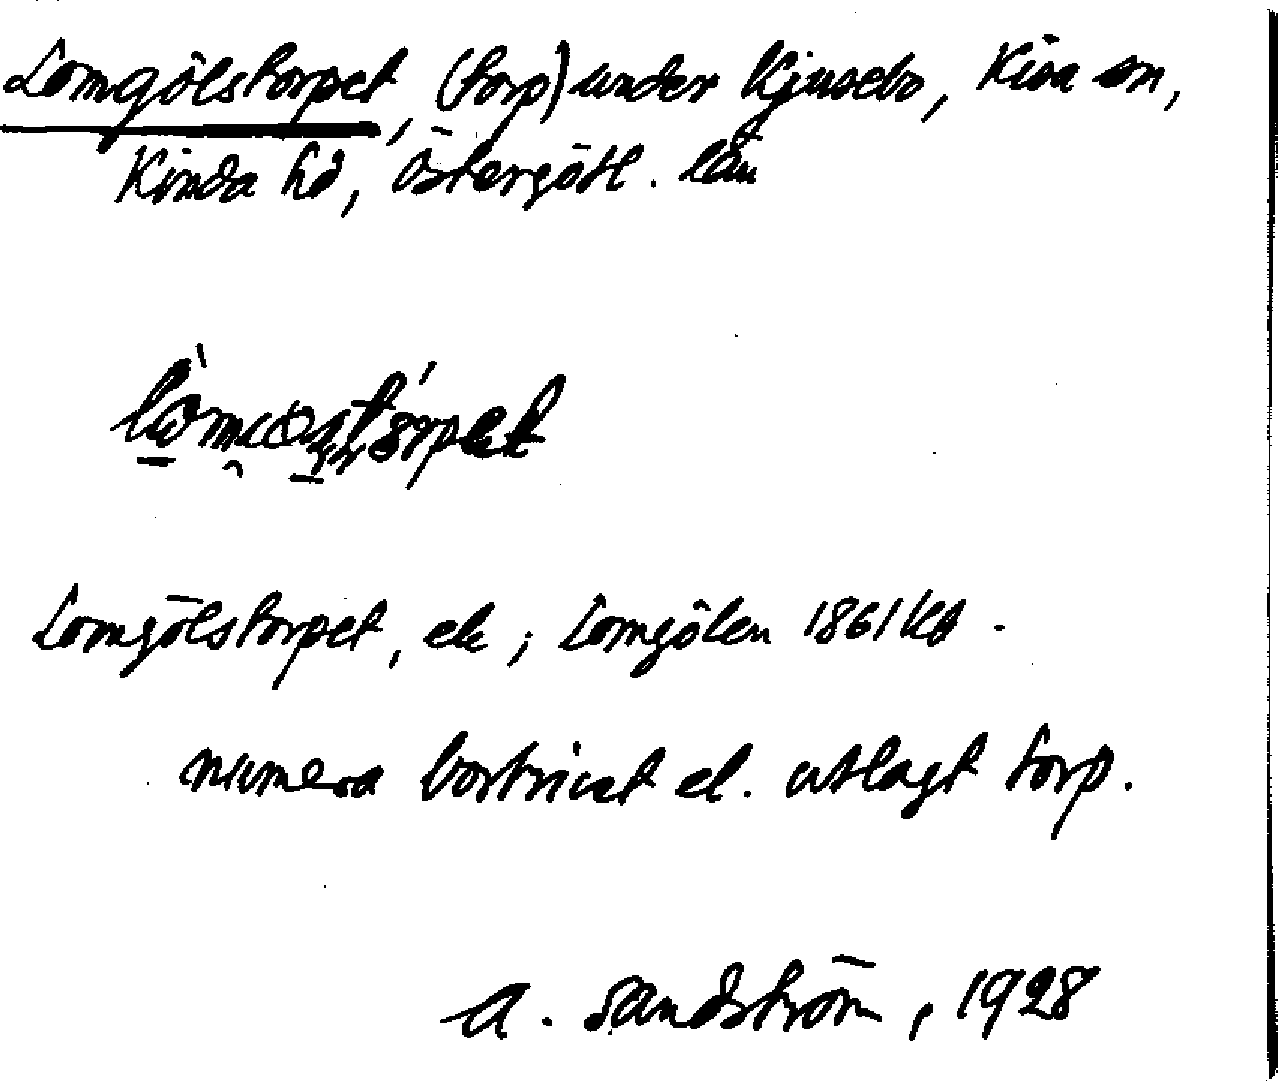 Lomgölstorpet, (torp) under Kjusebo, Kisa sn,
Kinda hd, Östergötl. län
Lomgölstorpet, ek; Lomgölen 1861 kb.
numera bortrivet el. utlagt torp.
A. Sandström, 1928